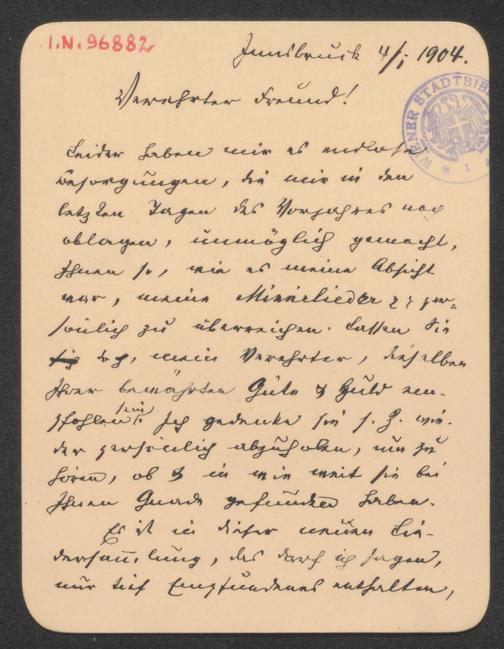 I.N. 96882
Innsbruck 4/I 1904.
WIENER STADTBIB
* 1 *
Verehrter Freund!
Leider haben mir es endlose
Besorgungen, die mir in den
letzten Tagen des Vorjahres noch
oblagen, unmöglich gemacht,
Ihnen so, wie es meine Absicht
war, meine Minnelieder per=
sönlich zu überreichen. Lassen Sie
doch, mein Verehrter, dieselben
Ihrer bewährten Güte & Huld em-
pfohlen sein! Ich gedenke sie s. Z. wie-
der persönlich abzuholen, um zu
hören, ob & in wie weit sie bei
Ihnen Gnade gefunden haben.
Es ist in dieser neuen Lie-
dersam̅lung, das darf ich sagen,
nur tief Empfundenes enthalten,